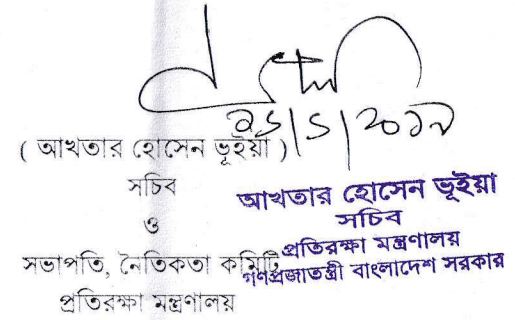 ( আখতার হোসেন ভূইয়া )
সচিব
ও
সভাপতি, নৈতিকতা কমিটি
প্রতিরক্ষা মন্ত্রণালয়
আখতার হোসেন ভূইয়া
সচিব
প্রতিরক্ষা মন্ত্রণালয়
গণপ্রজাতন্ত্রী বাংলাদেশ সরকার